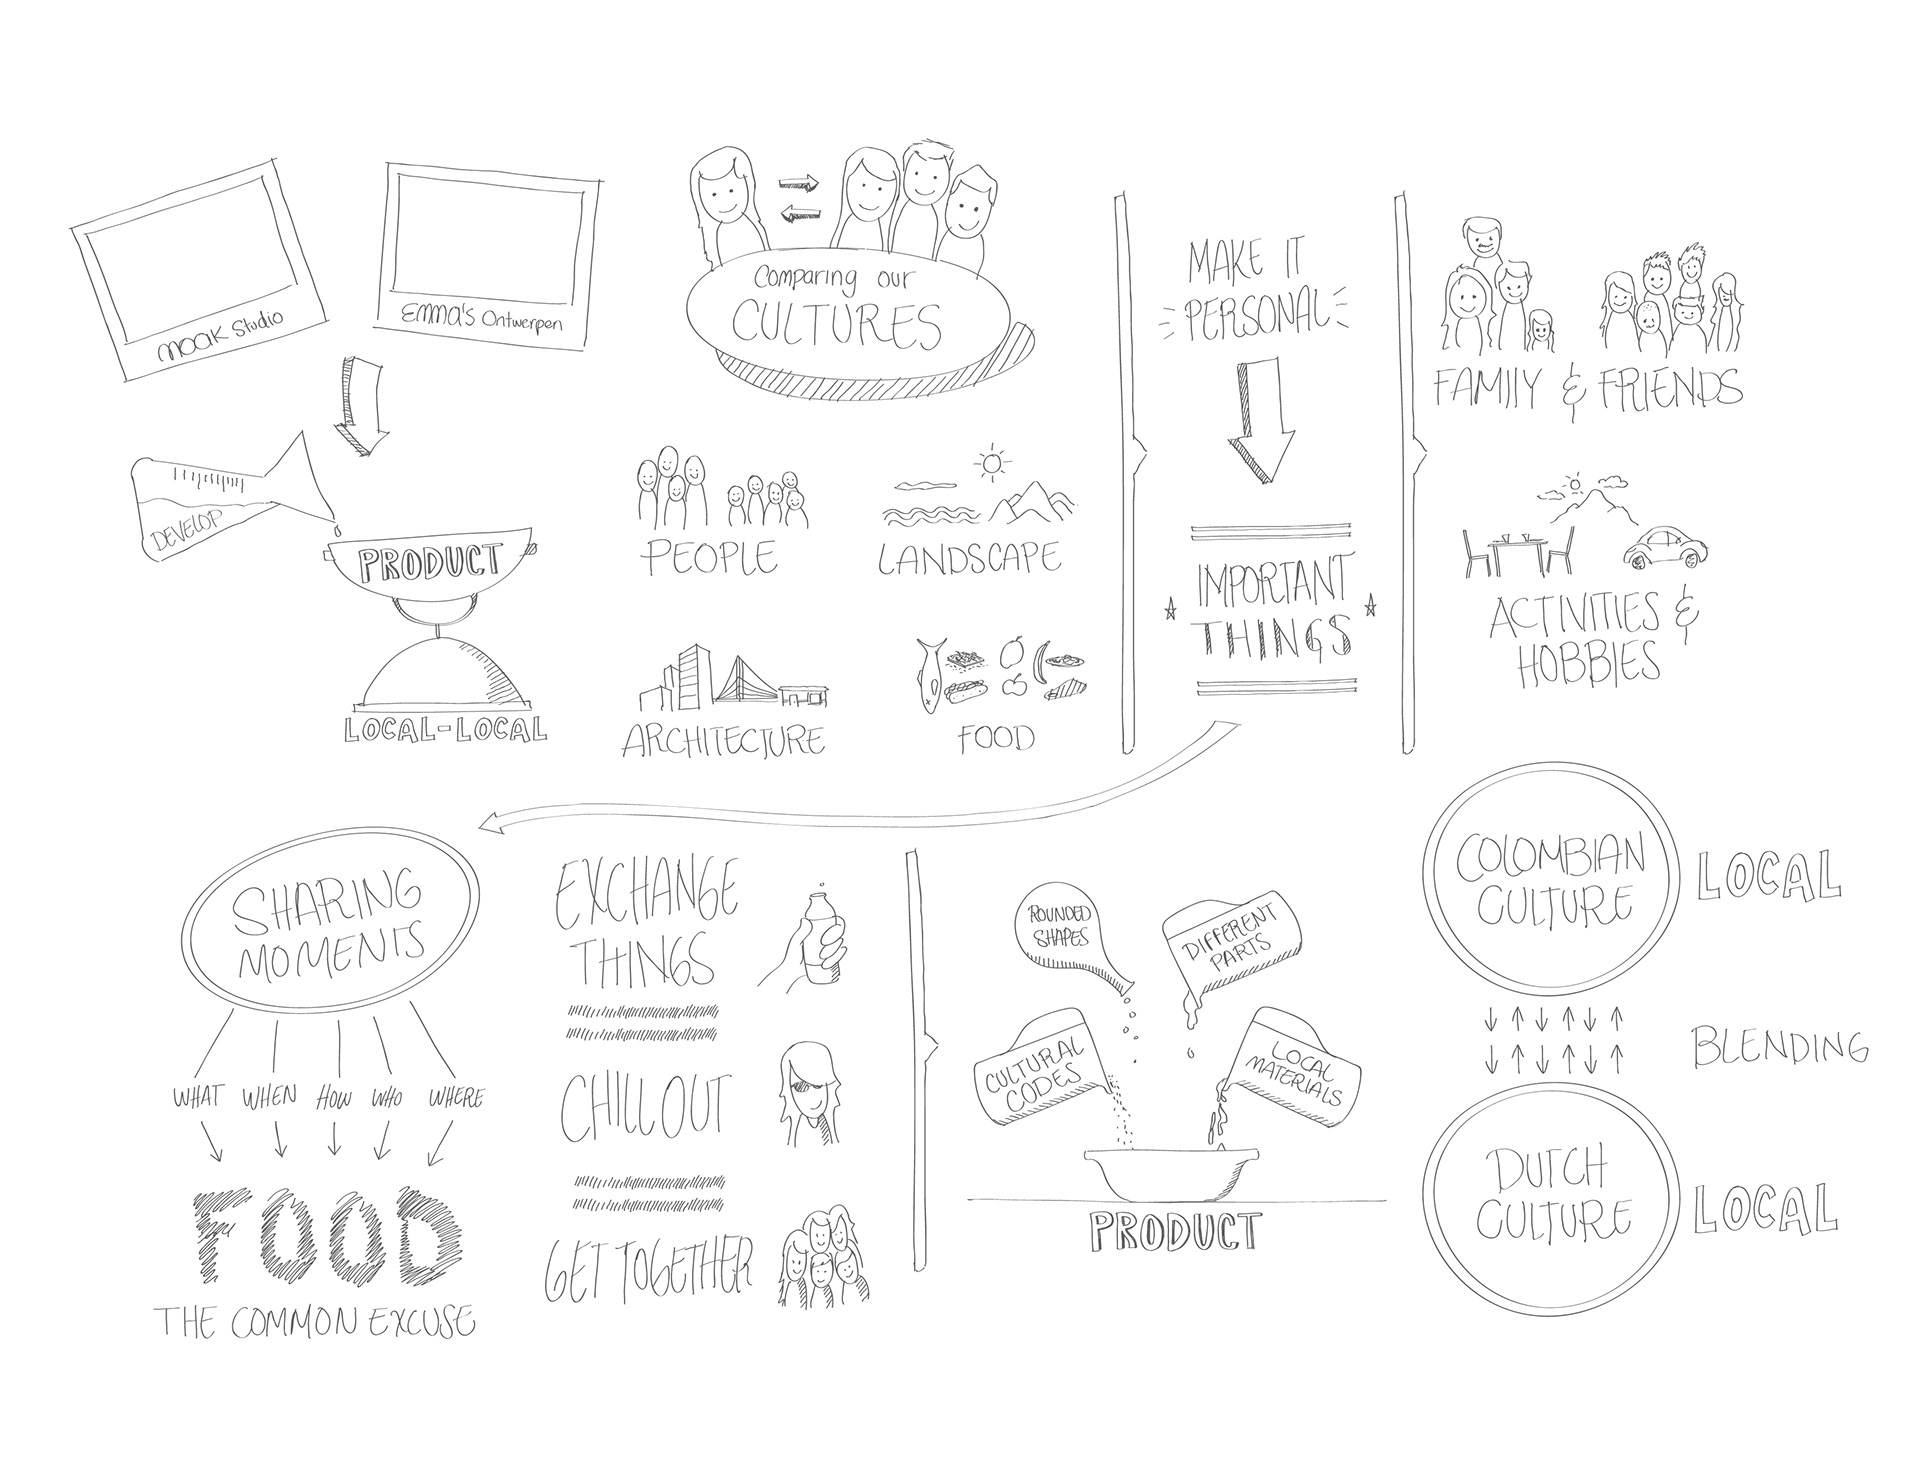 MOAK Studio
EMMA'S Ontwerpen
DEVELOP
PRODUCT
LOCAL-LOCAL
Comparing our
CULTURES
PEOPLE
LANDSCAPE
ARCHITECTURE
FOOD
MAKE IT
PERSONAL
IMPORTANT
THINGS
FAMILY & FRIENDS
ACTIVITIES &
HOBBIES
SHARING
MOMENTS
WHAT WHEN HOW WHO WHERE
FOOD
THE COMMON EXCUSE
EXCHANGE
THINGS
CHILLOUT
GET TOGETHER
ROUNDED
SHAPES
DIFFERENT
PARTS
CULTURAL
CODES
LOCAL
MATERIALS
PRODUCT
COLOMBIAN
CULTURE
LOCAL
BLENDING
DUTCH
CULTURE
LOCAL